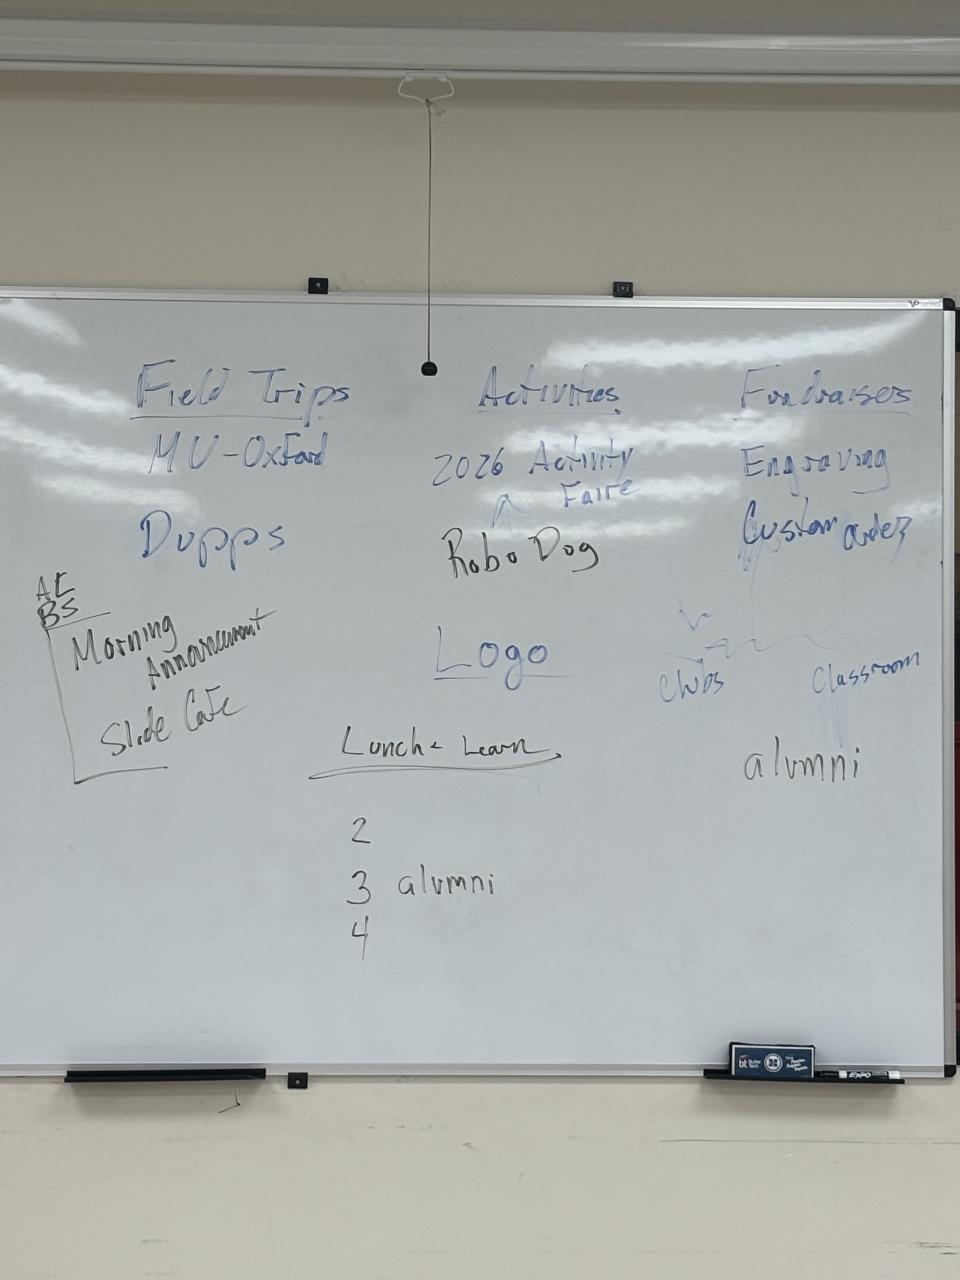 Field Trips
MU-Oxford
Dupps
AE
BS
Morning
Annancement
Slide Cafe
Activities
2026 Activity
Faire
Robo Dog
Logo
Lunch & Learn
2
3 alumni
4
Fundraisers
Engraving
Custom orders
Clubs
Classroom
alumni
bt Butler Tech
EXPO